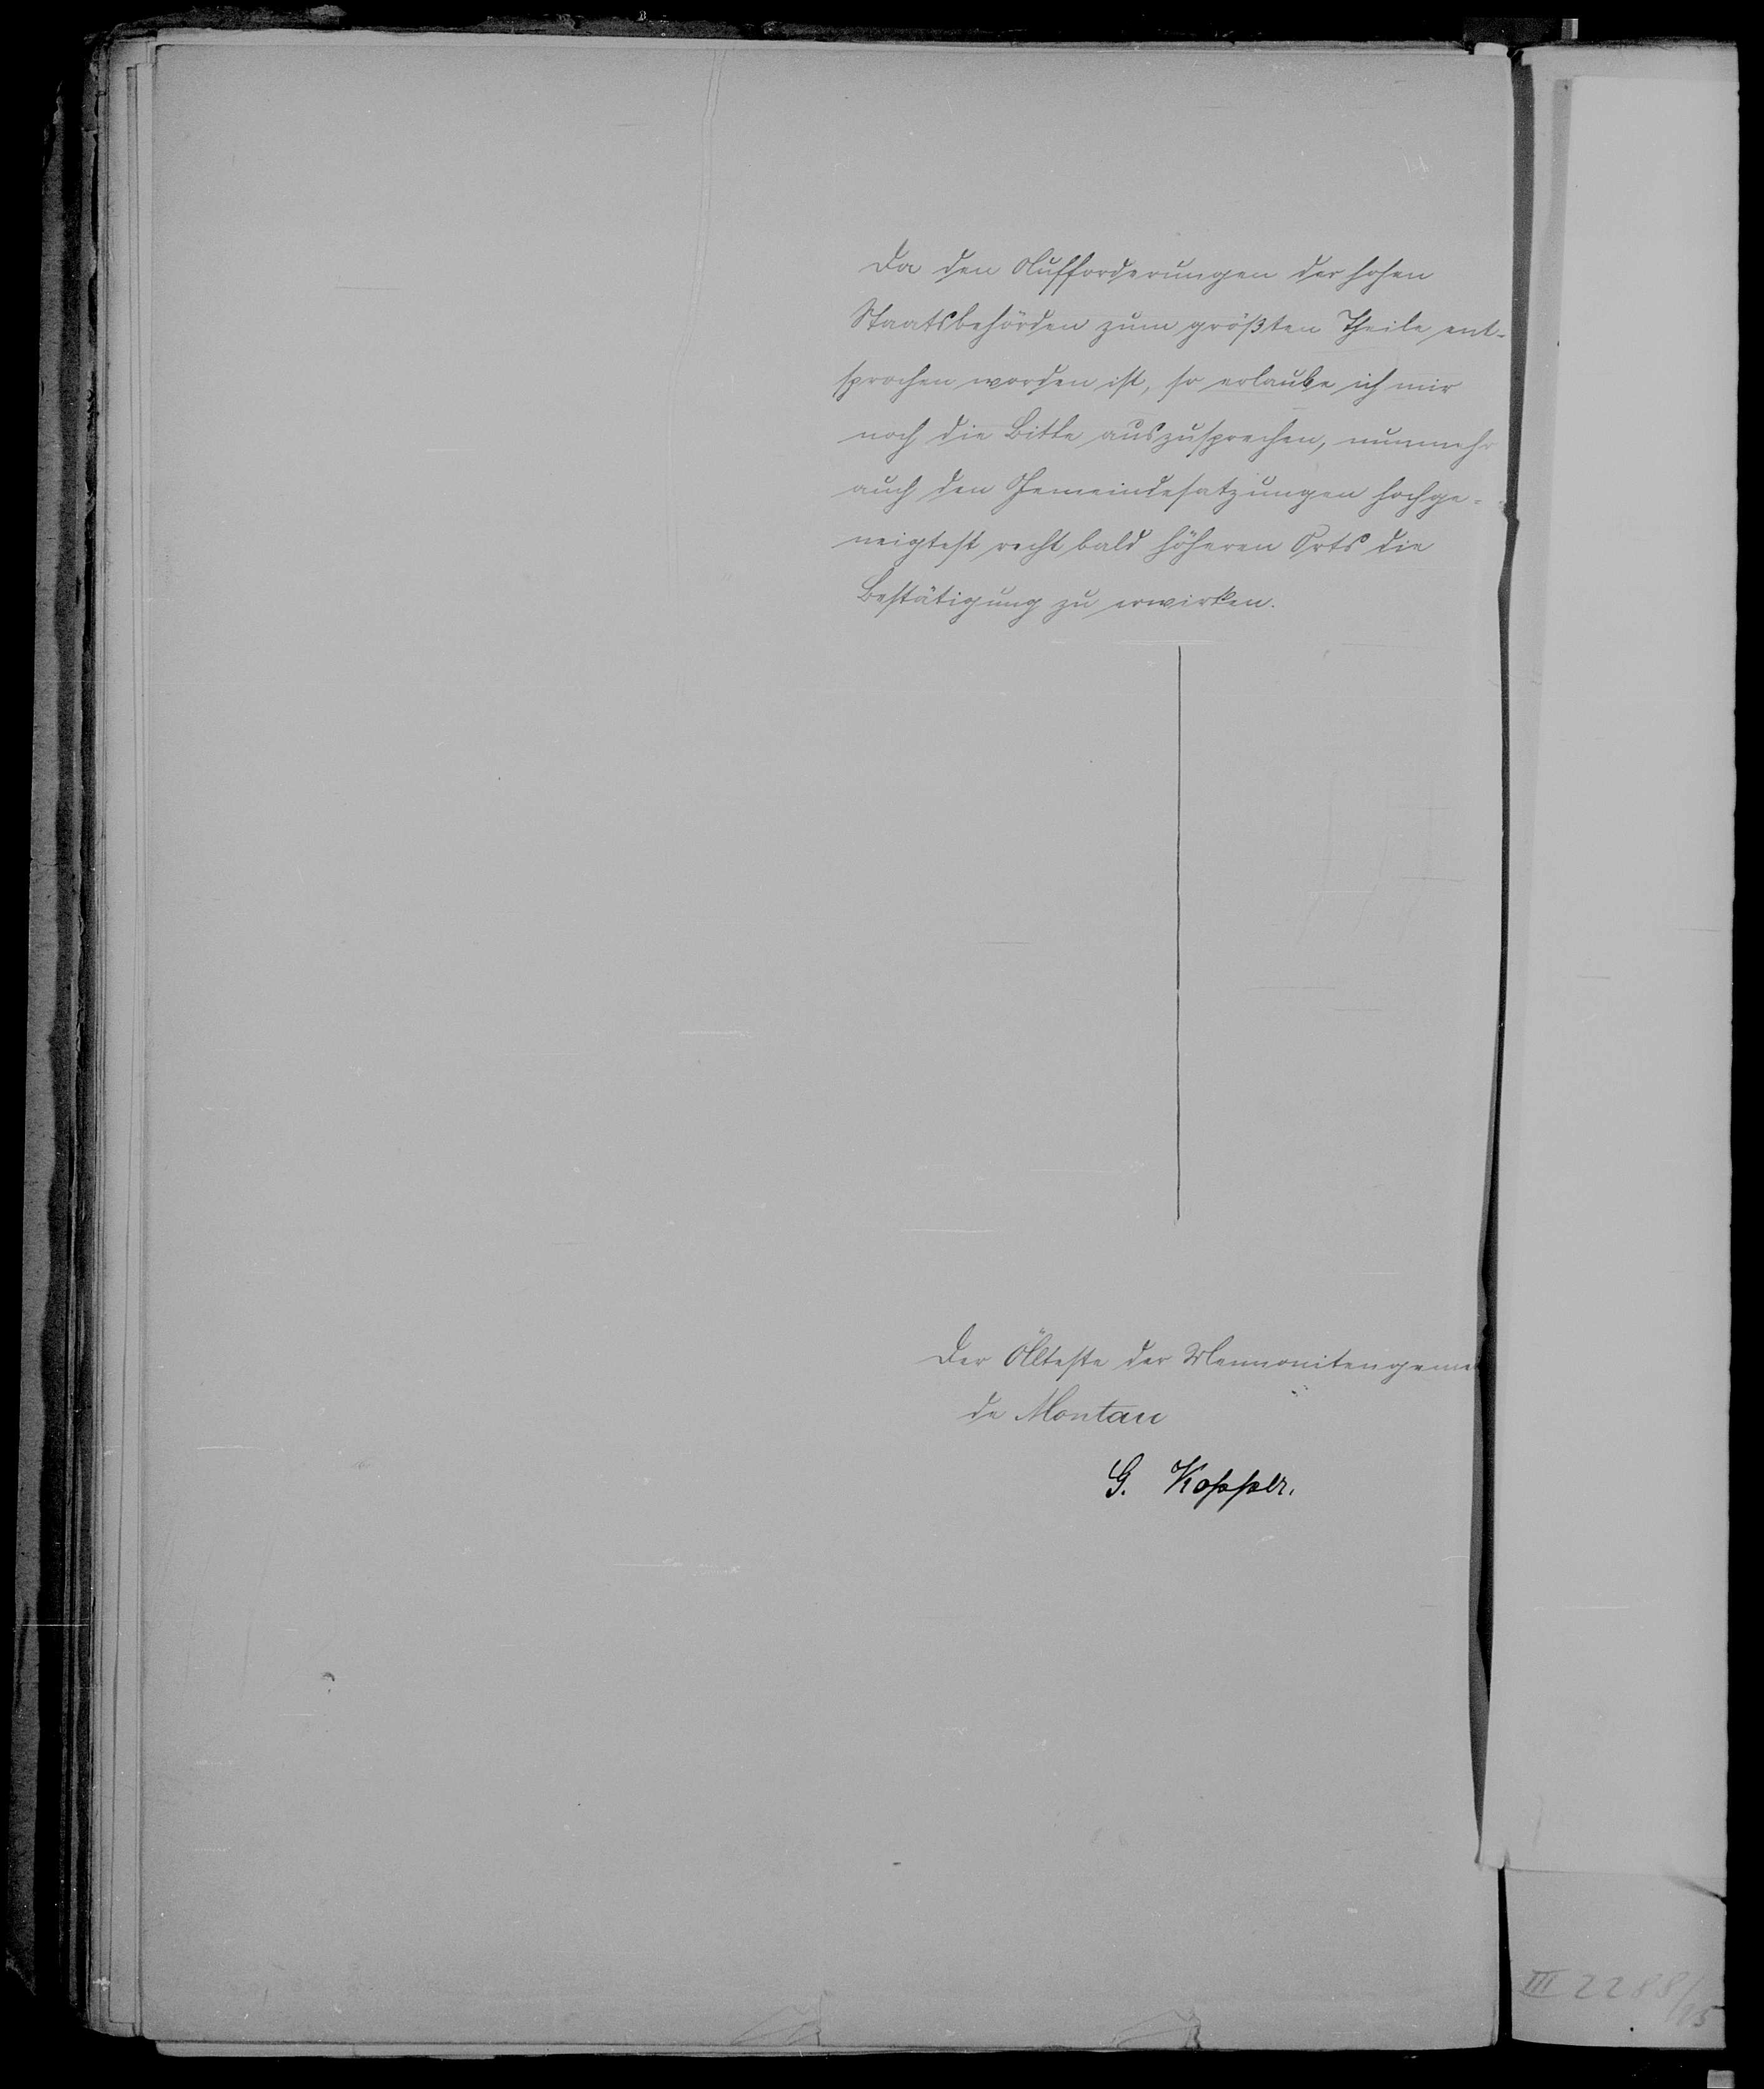 Da den Aufforderungen der hohen
Staatsbehörden zum größten Theile ent-
sprochen worden ist, so erlaube ich mir
noch die Bitte auszusprechen, nunmehr
auch den Gemeindesatzungen hochge-
neigtest recht bald höheren Orts die
Bestätigung zu erwirken.
Der Älteste der Mennonitengemei
de Montau
G. Kopper.
III 2288/